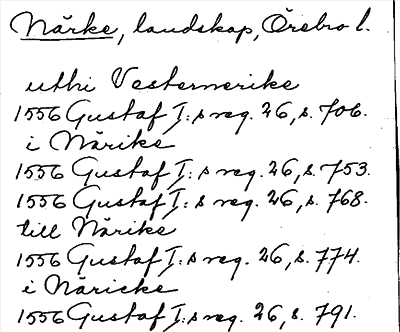 Närke, landskap, Örebro l.
uthi Vesternerike
1556 Gustaf I:s reg. 26, s. 706.
i Närike
1556 Gustaf I:s reg. 26, s. 753.
1556 Gustaf I:s reg. 26, s. 768.
till Närike
1556 Gustaf I:s reg. 26, s. 774.
i Näricke
1556 Gustaf I:s reg. 26, s. 791.